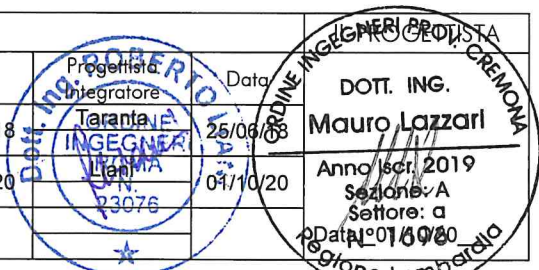 IL PROGETTISTA
Progettista
Integratore
Data
8
Taranta
25/06/18
20
Liani
01/10/20
Data 01/10/20
Dott. Ing. ROBERTO
INGEGNERI
N.
23076
ORDINE INGEGNERI PROV. CREMONA
DOTT. ING.
Mauro Lazzari
Anno Iscr. 2019
Sezione: A
Settore: a
N° 1696
Regione Lombardia